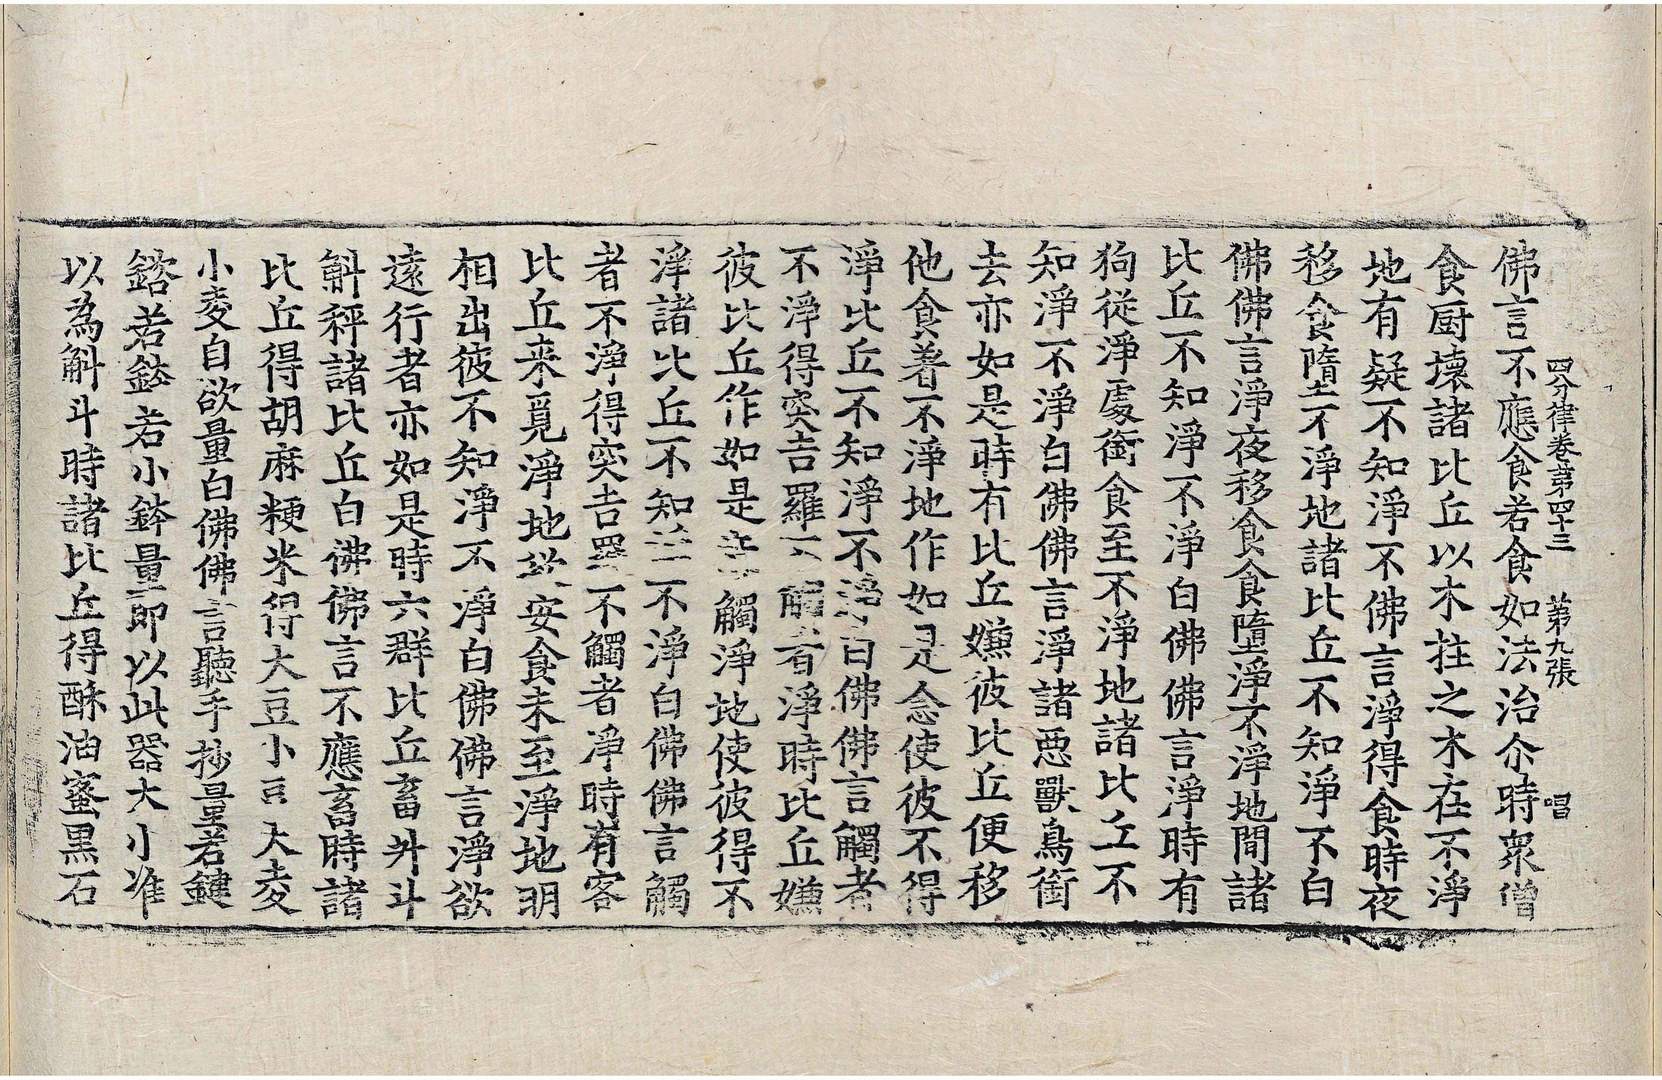 四分律卷第四十三 第九張 唱
佛言不應食若食如法治尒時眾僧
食厨壞諸比丘以木拄之木在不淨
地有疑不知淨不佛言淨得食時夜
移食墮不淨地諸比丘不知淨不白
佛佛言淨夜移食食墮淨不淨地間諸
比丘不知淨不淨白佛佛言淨時有
狗從淨處銜食至不淨地諸比丘不
知淨不淨白佛佛言淨諸惡獸鳥銜
去亦如是時有比丘嫌彼比丘便移
他食著不淨地作如是念使彼不得
淨比丘不知淨不淨白佛佛言觸者
不淨得突吉羅不觸者淨時比丘嫌
彼比丘作如是觸淨地使彼得不
淨諸比丘不知不淨白佛佛言觸
者不淨得突吉羅不觸者淨時有客
比丘来覓淨地安食未至淨地明
相出彼不知淨不淨白佛佛言淨欲
遠行者亦如是時六群比丘畜升斗
斛秤諸比丘白佛佛言不應畜時諸
比丘得胡麻粳米得大豆小豆大麦
小麦自欲量白佛佛言聽手抄量若鍵
鎔若鉢若小鉢量即以此器大小准
以為斛斗時諸比丘得酥油蜜黑石